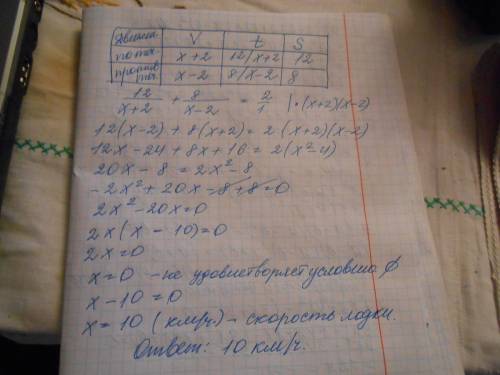 Движен. V t S
по теч. x+2 12/x+2 12
против теч. x-2 8/x-2 8
12/(x+2) + 8/(x-2) = 2/1 | ·(x+2)(x-2)
12(x-2) + 8(x+2) = 2 (x+2)(x-2)
12x - 24 + 8x + 16 = 2(x²-4)
20x - 8 = 2x² - 8
-2x² + 20x - 8 + 8 = 0
2x² - 20x = 0
2x (x - 10) = 0
2x = 0
x = 0 - не удовлетворяет условию ∅
x - 10 = 0
x = 10 (км/ч.) - скорость лодки.
Ответ: 10 км/ч.